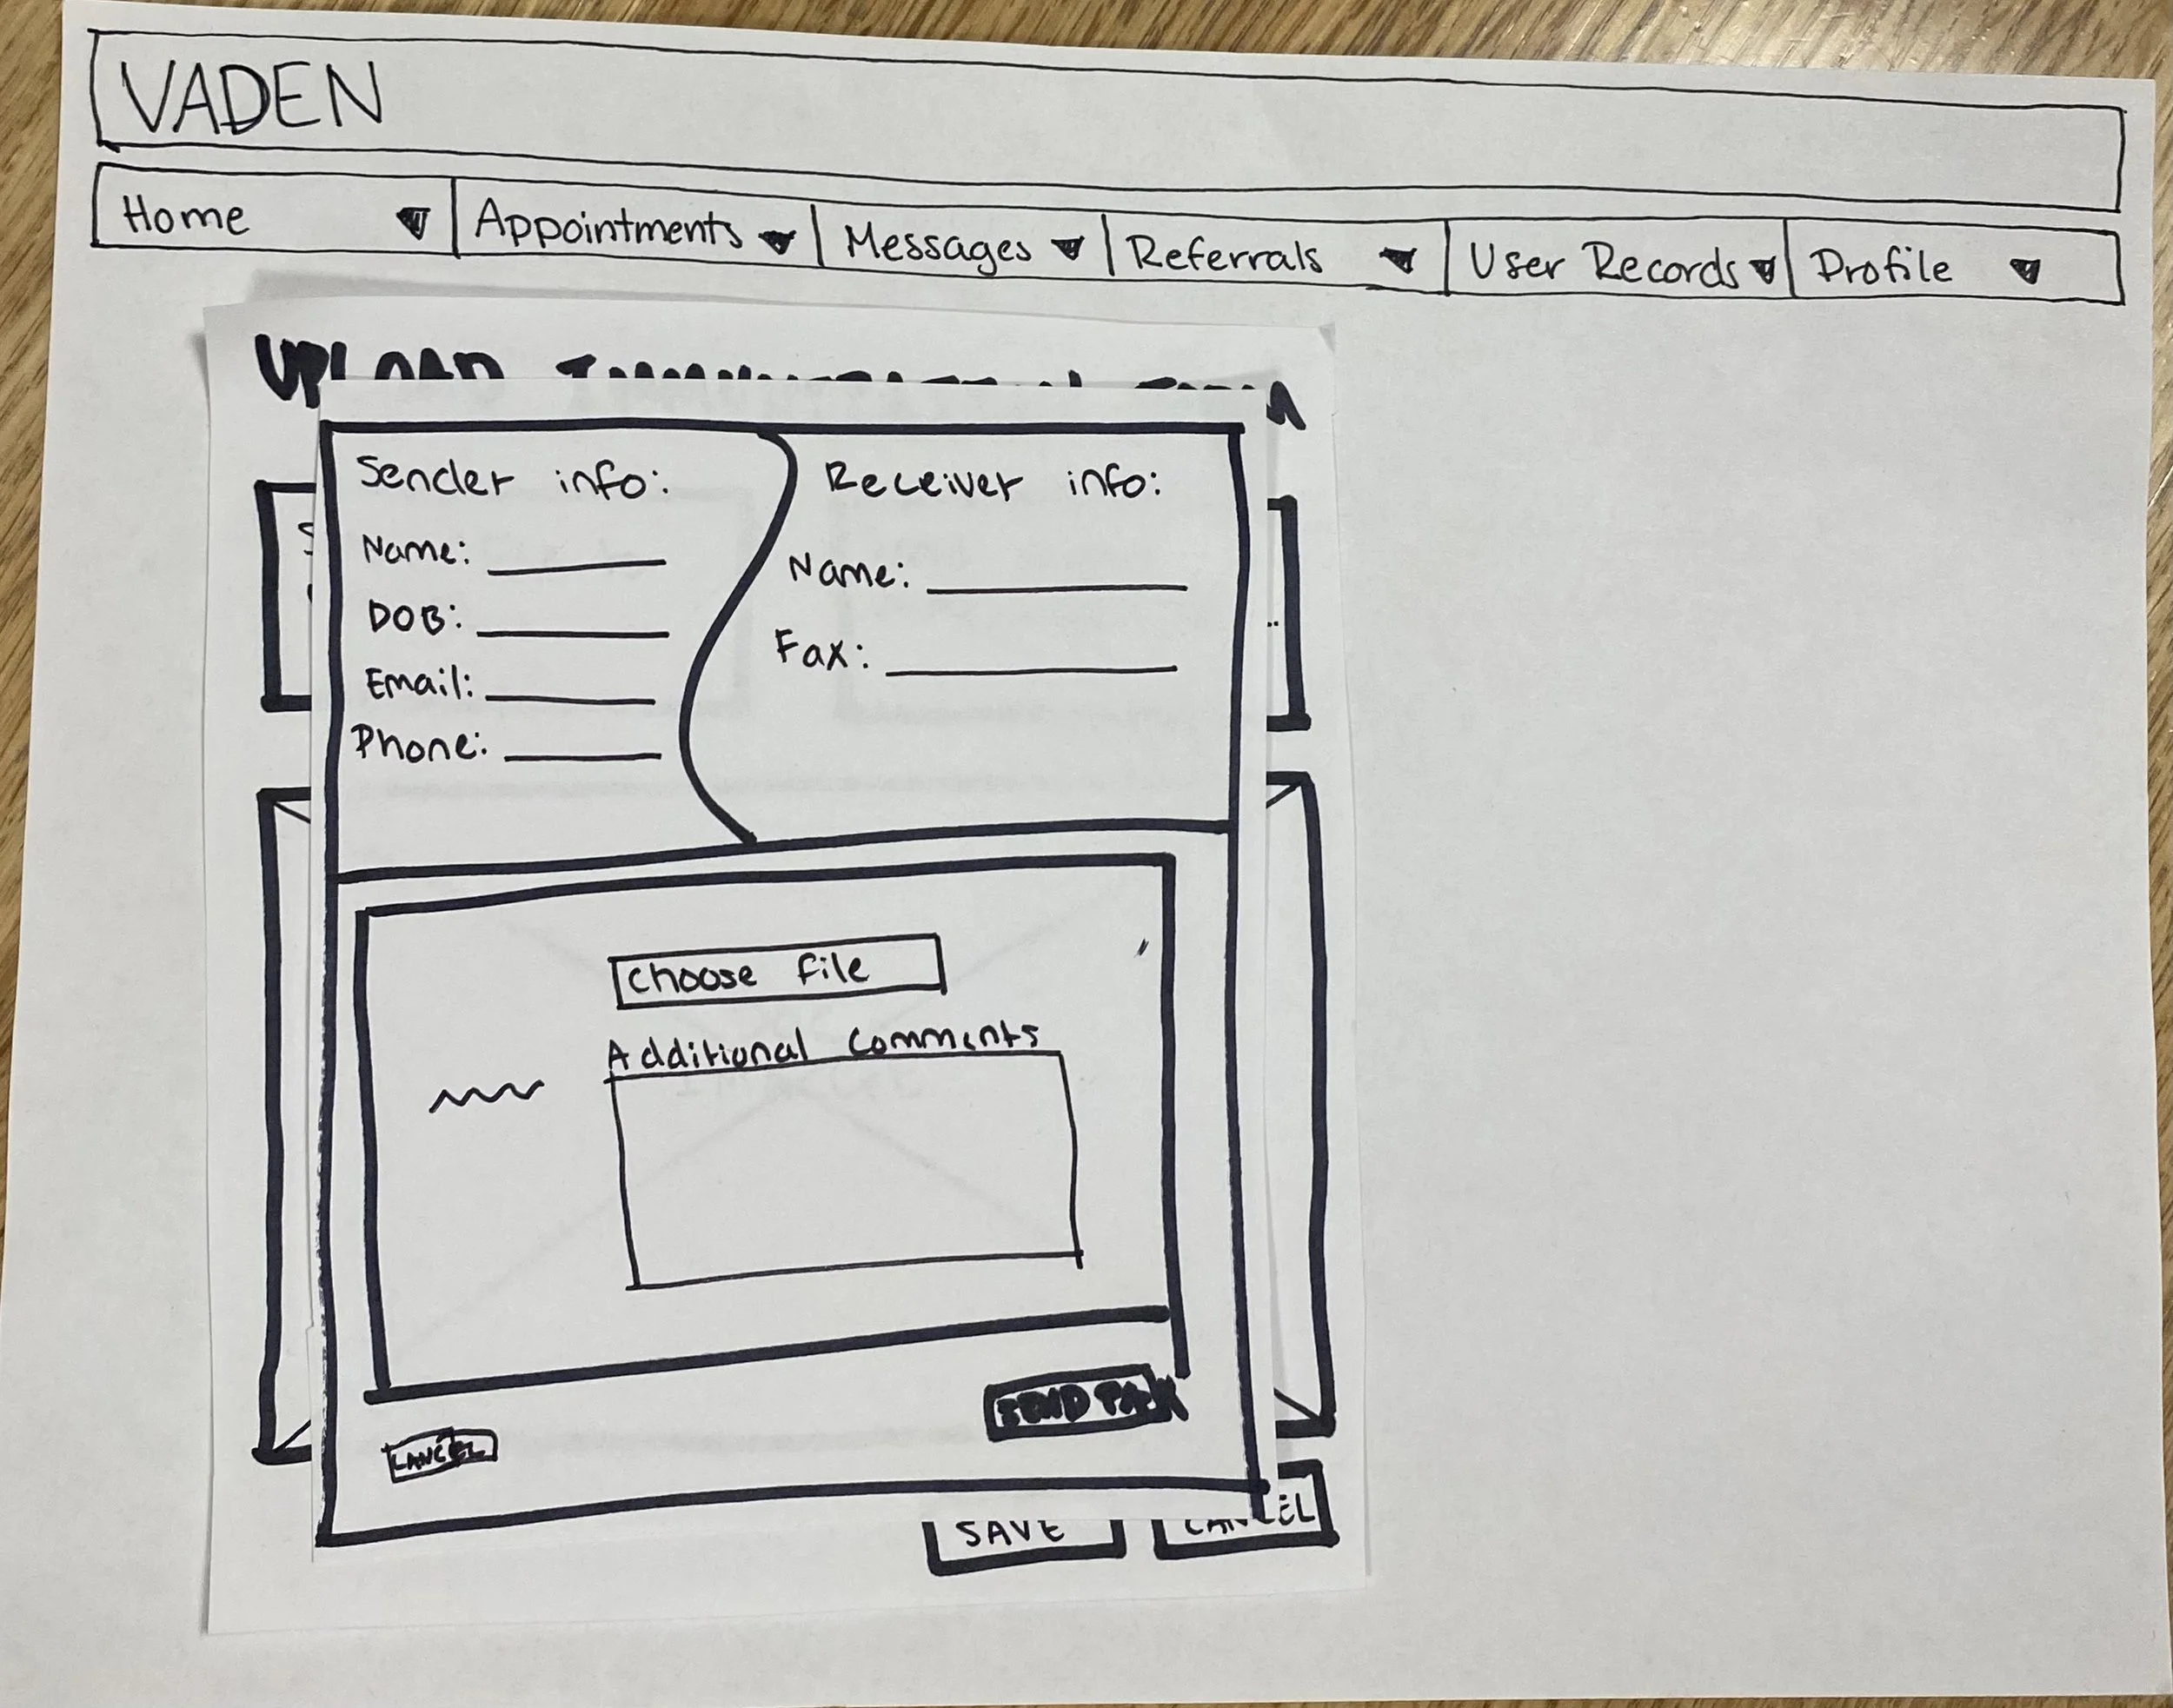 VADEN
Home Appointments Messages Referrals User Records Profile
UPLOAD
Sender info:
Name:
DOB:
Email:
Phone:
Receiver info:
Name:
Fax:
Choose File
Additional Comments
SEND FAX
CANCEL
SAVE CANCEL